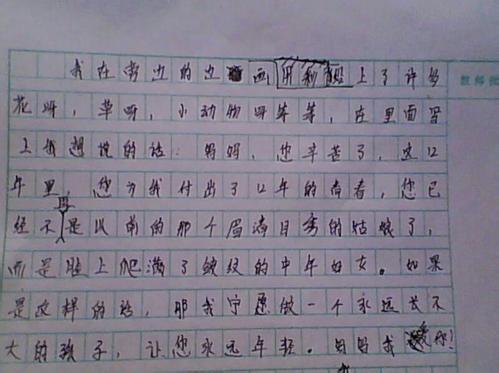 我在旁边的边画用彩铅上了许多
花呀，草呀，小动物呀等等，在里面写
上我想说的话：妈妈，您辛苦了，这12
年里，您为我付出了12年的青春，您已
经不是以前的那个眉清目秀的姑娘了，
而是脸上爬满了皱纹的中年妇女。如果
是这样的话，那我宁愿做一个永远长不
大的孩子，让您永远年轻。妈妈我爱你！